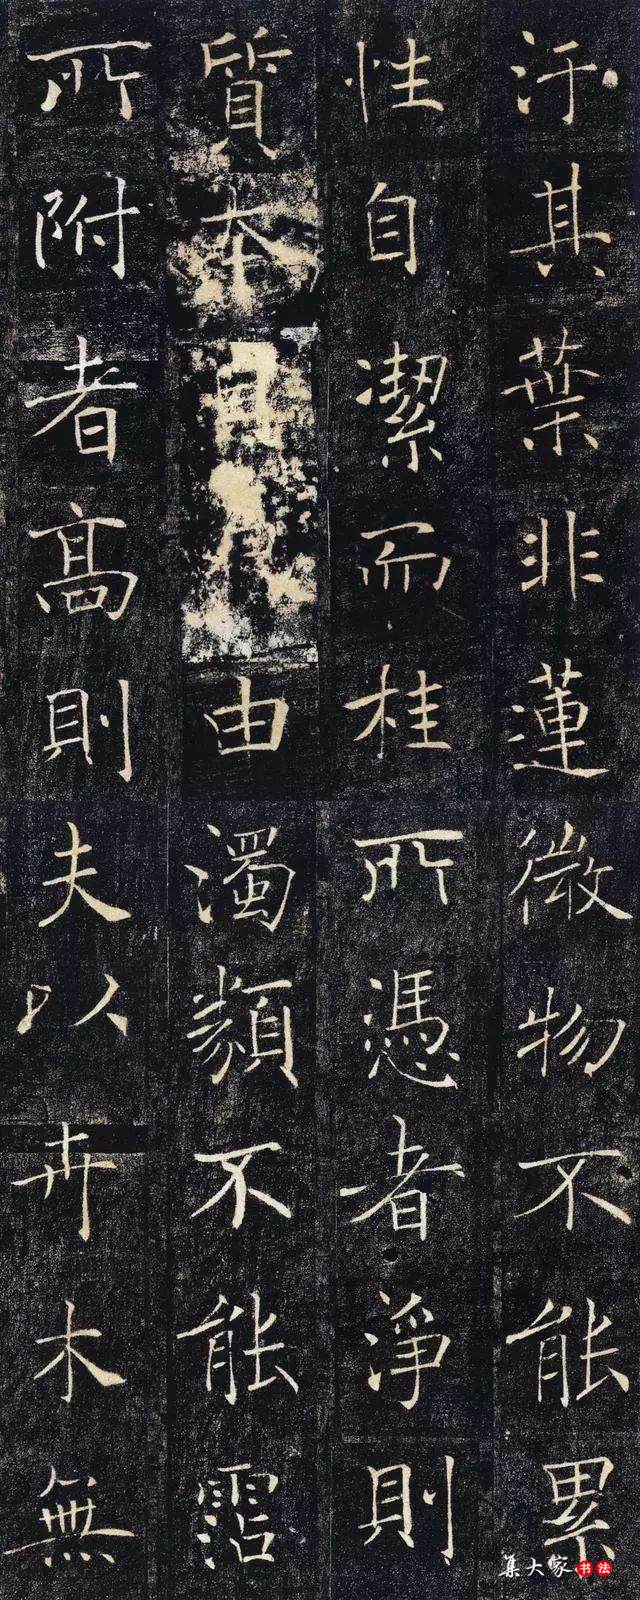 汙其葉非蓮
性自潔而桂
質本由
所附者高則
微物不能累
所憑者淨則
濁類不能霑
夫以卉木無
集大家书法